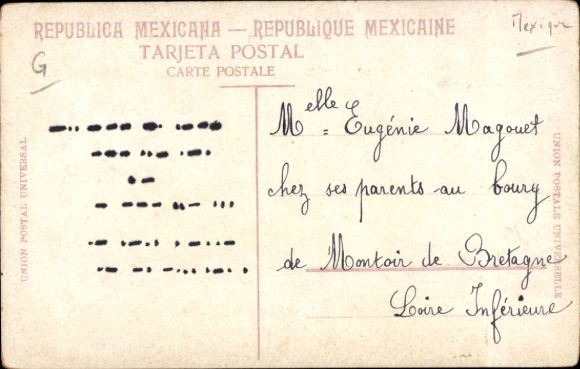 Mexique
REPUBLICA MEXICANA — REPUBLIQUE MEXICAINE
TARJETA POSTAL
CARTE POSTALE
G
UNION POSTAL UNIVERSAL
Melle = Eugénie Magouet
chez ses parents au bourg
de Montoir de Bretagne
Loire Inférieure
UNION POSTALE UNIVERSELLE